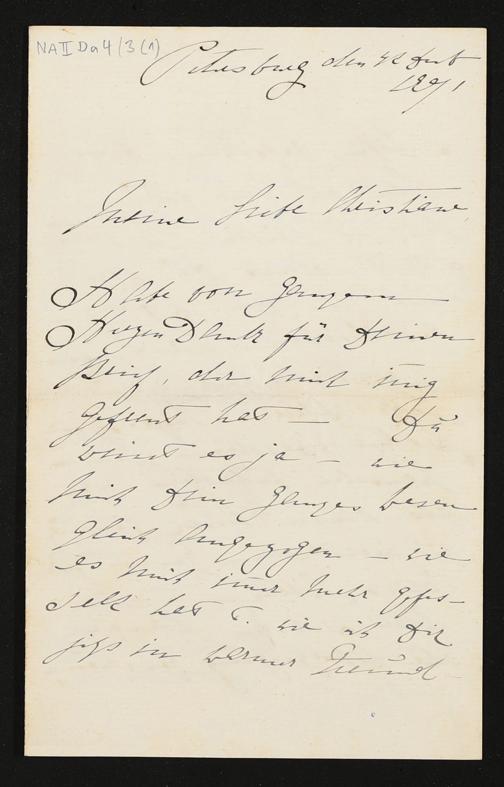 NA II Da 4/3 (1)
Petersburg den
1891
Meine liebe Christiane
Habe von ganzem
Herzen Dank für Deinen
Brief, der mich innig
gefreut hat — Du
weißt es ja — wie
mich Dein ganzes Wesen
gleich angezogen — wie
es mich immer mehr gefes-
selt hat u. wie ich Dir
jetzt in warmer Freund-